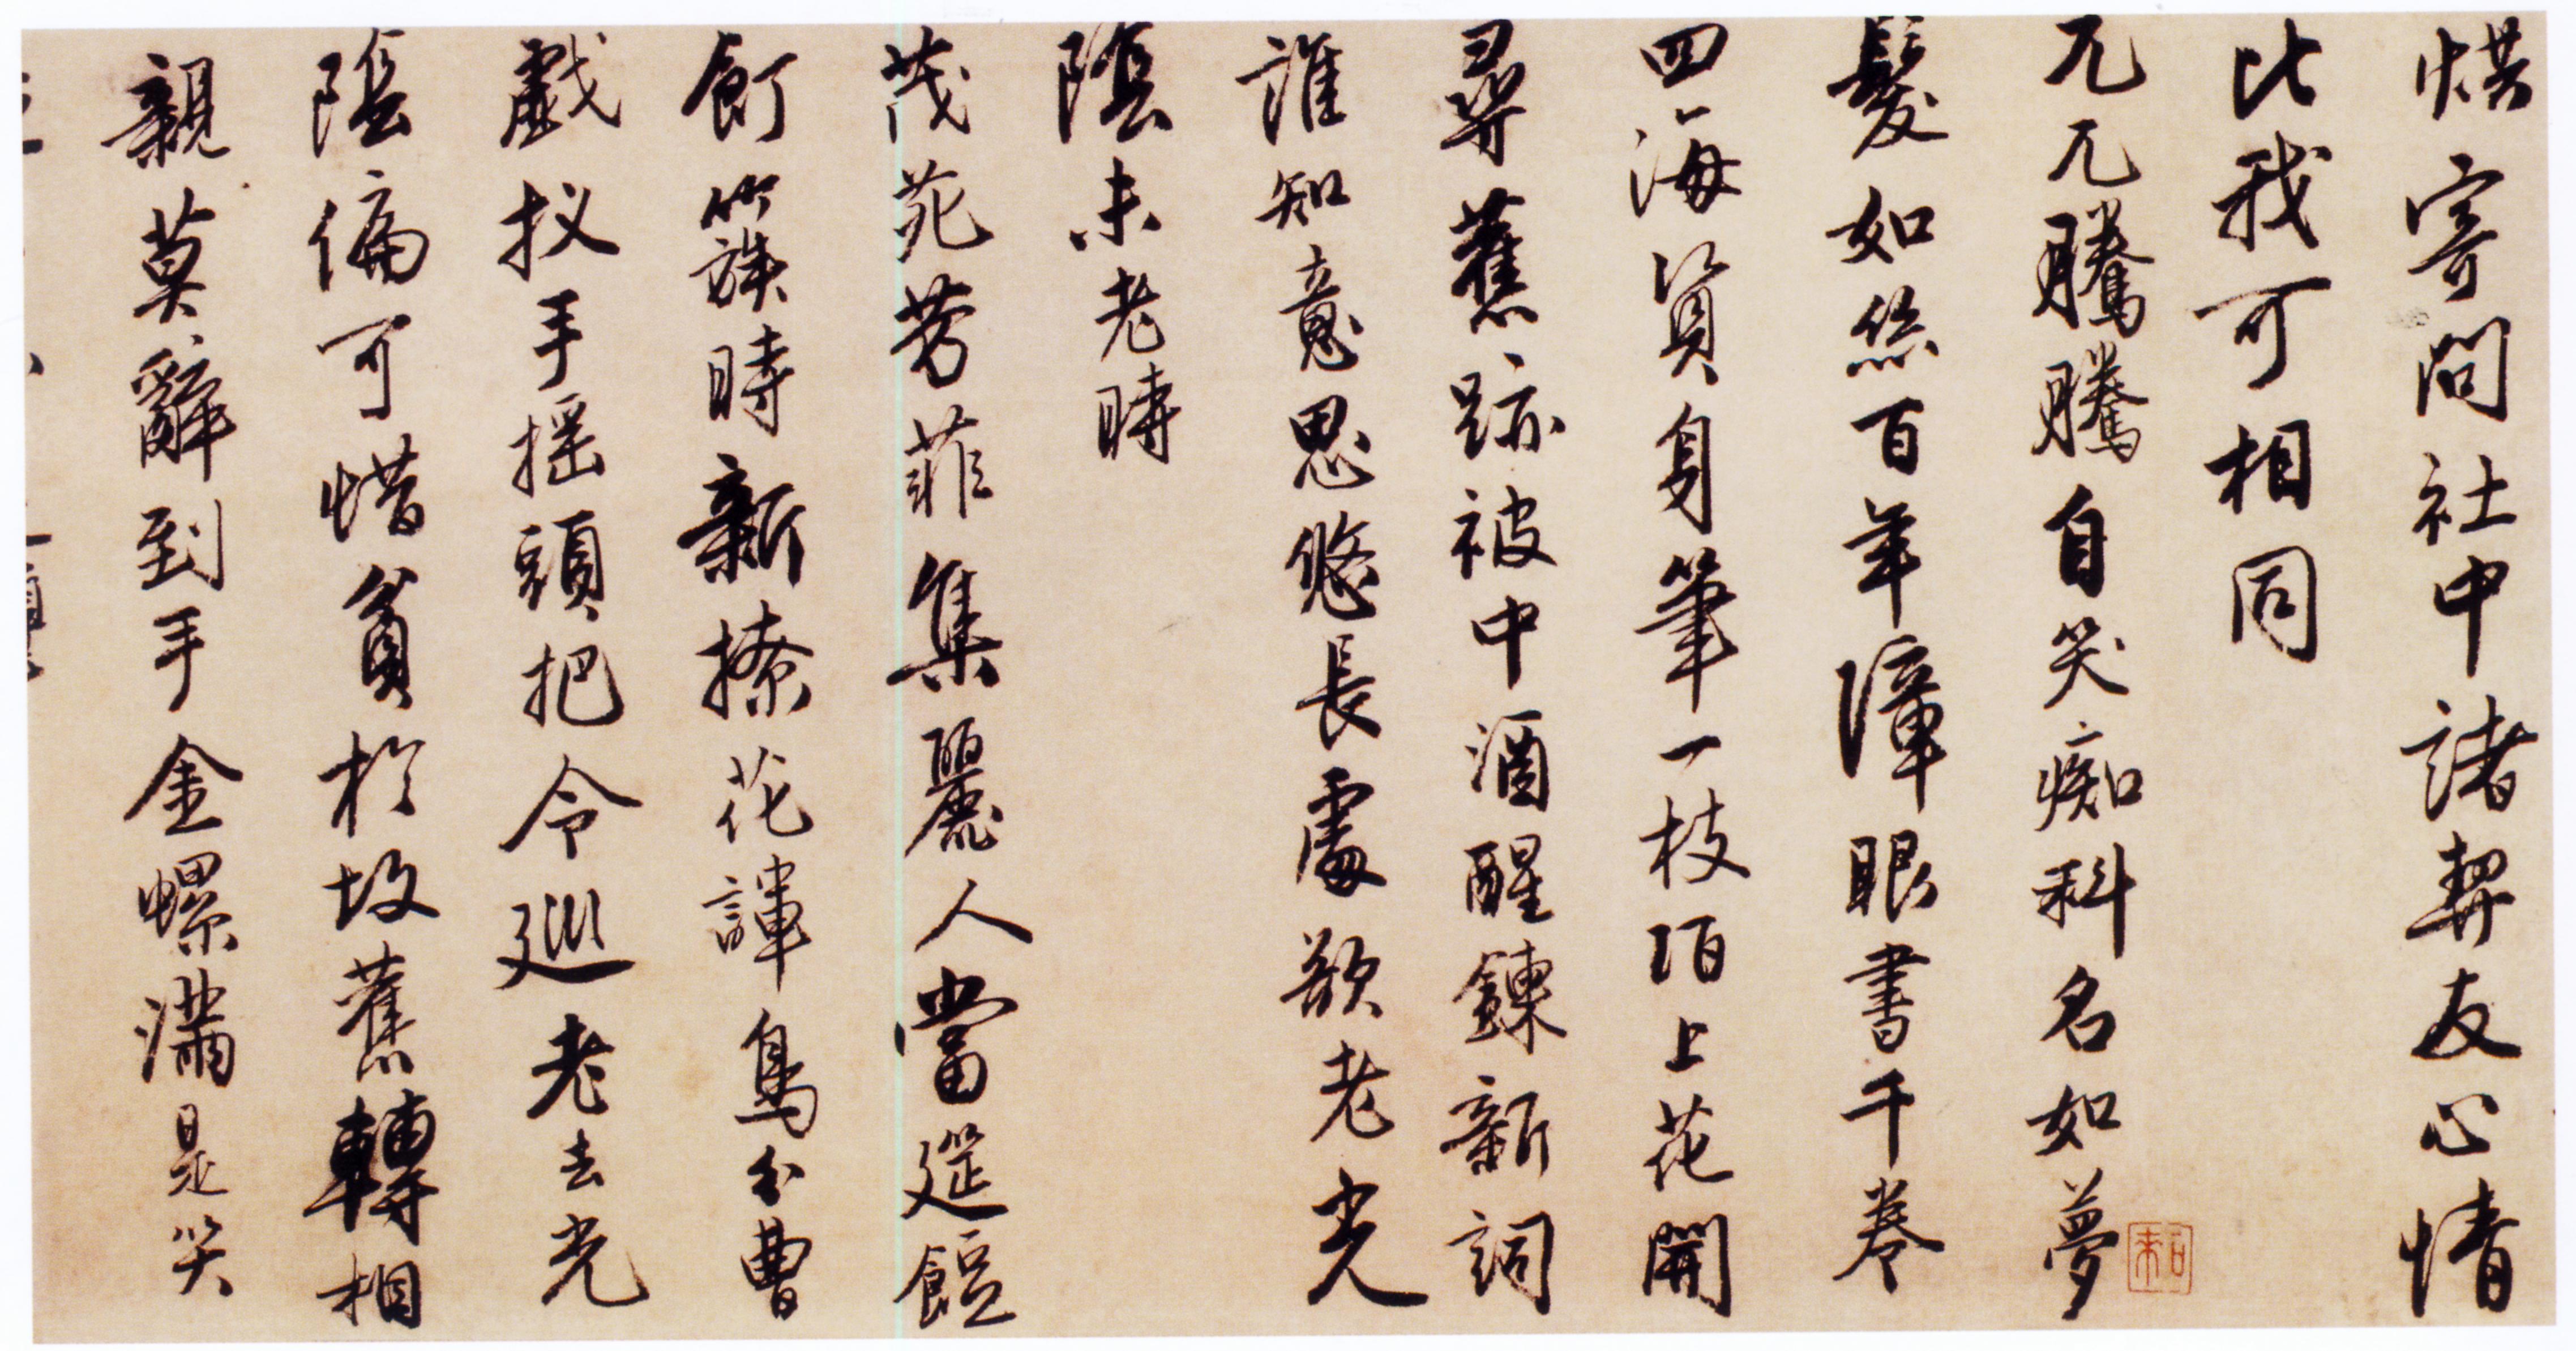 烘寄問社中諸契友心情
比我可相同
兀兀騰騰自笑痴科名如夢
髮如絲百年障眼書千卷
四海資身筆一枝陌上花開
尋舊跡被中酒醒鍊新詞
誰知意思悠長處欲老光
陰未老時
茂苑芳菲集麗人當筵餖
飣簇時新撩花諢鳥分曹
戲扠手搖頭把令巡老去光
陰偏可惜貧於故舊轉相
親莫辭到手金螺滿是笑